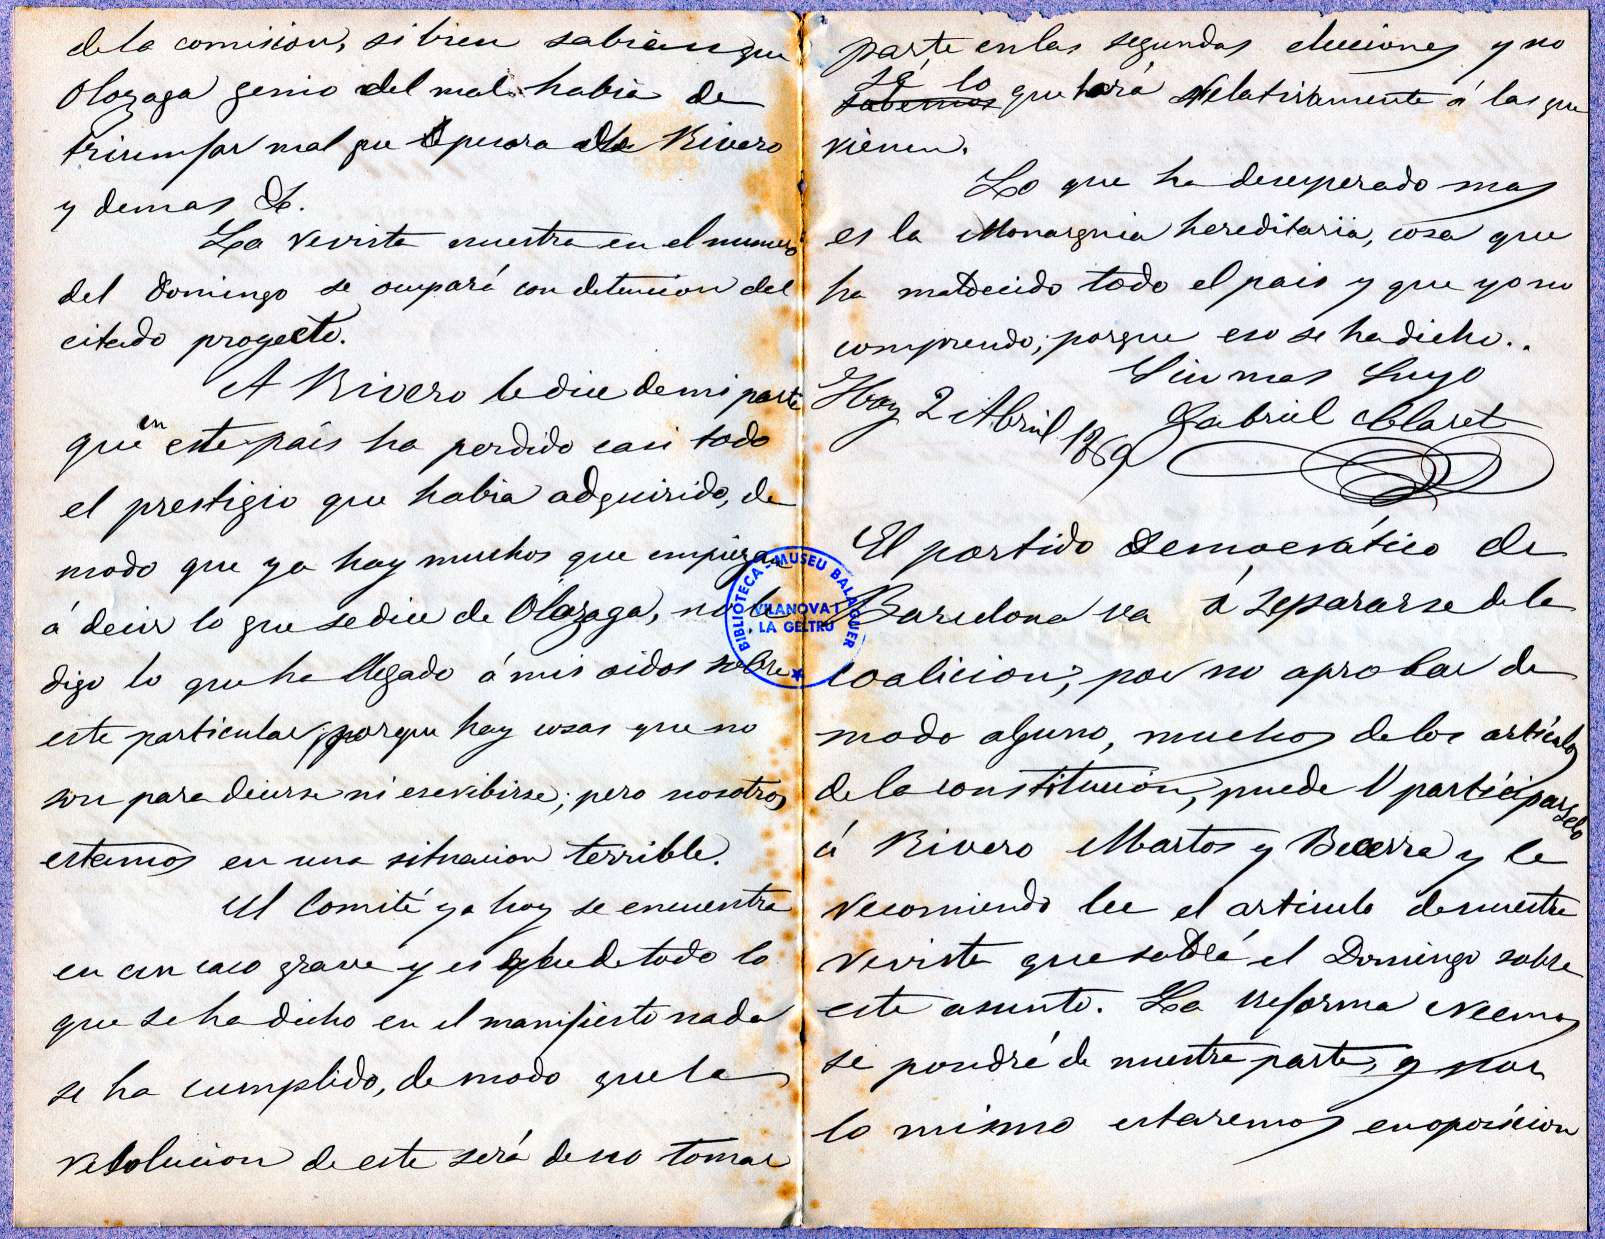 de la comision, si bien sabian que
Olozaga genio del mal habia de
triumfar mal que pesara a Rivero
y demas &.
La revista nuestra en el numero
del Domingo se ocupará con detencion del
citado proyecto.
A Rivero le dice de mi parte
que en este pais ha perdido casi todo
el prestigio que habia adquirido, de
modo que ya hay muchos que empiezan
á decir lo que se dice de Olozaga, no le
digo lo que ha llegado á mis oidos sobre
este particular, porque hay cosas que no
son para decirse ni escribirse; pero nosotros
estamos en una situacion terrible.
El Comité ya hoy se encuentra
en un caso grave y es que de todo lo
que se ha dicho en el manifiesto nada
se ha cumplido, de modo que la
resolucion de este será de no tomar
parte en las segundas elecciones y no
sé lo
sabemos que hará relativamente á las que
vienen.
Lo que ha desesperado mas
es la Monarquia hereditaria, cosa que
ha todo el pais y que yo no
comprendo; porque eso se ha dicho..
Sin mas Suyo
Hoy 2 Abril 1869 Gabriel Claret
El partido democrático de
Barcelona va á separarse de la
coalicion; por no aprobar de
modo alguno, muchos de los articulos
de la constitucion, puede V participarselo
á Rivero Martos y Becerra y le
recomiendo lee el articulo de nuestra
revista que saldrá el Domingo sobre
este asunto. La reforma creemos
se pondrá de nuestra parte, y por
lo mismo estaremos en oposicion
BIBLIOTECA - MUSEU BALAGUER
VILANOVA I
LA GELTRÚ